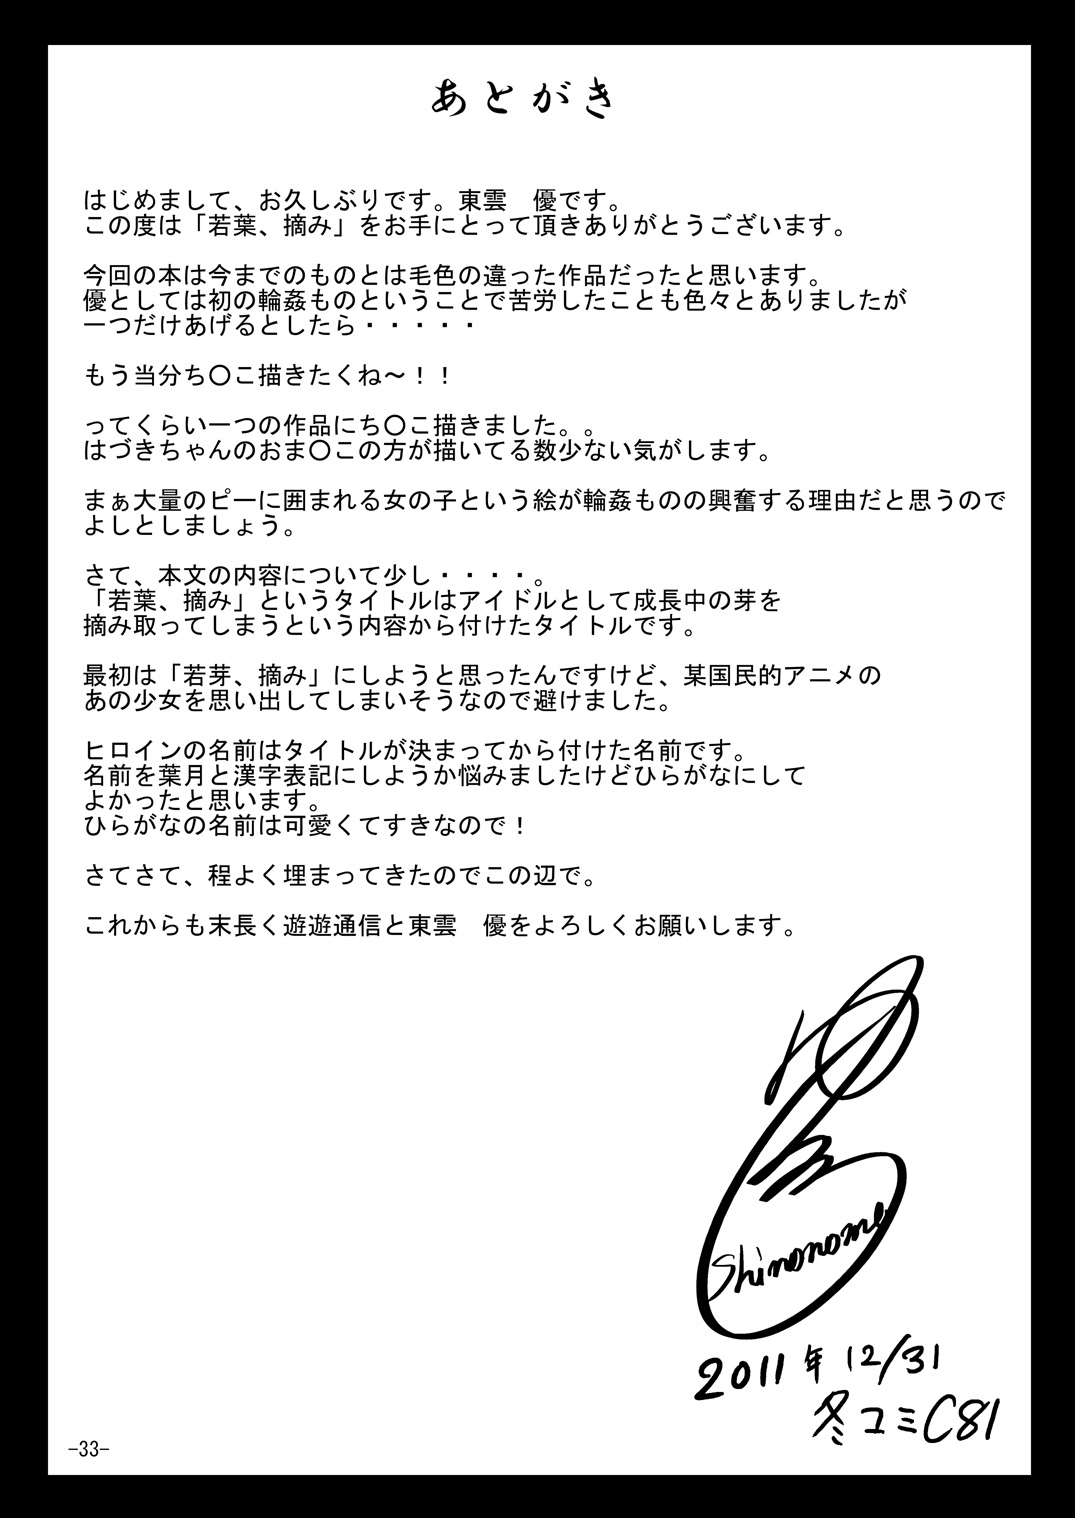 あとがき
はじめまして、お久しぶりです。東雲　優です。
この度は「若葉、摘み」をお手にとって頂きありがとうございます。
今回の本は今までのものとは毛色の違った作品だったと思います。
優としては初の輪姦ものということで苦労したことも色々とありましたが
一つだけあげるとしたら・・・・・
もう当分ち〇こ描きたくね～！！
ってくらい一つの作品にち〇こ描きました。。
はづきちゃんのおま〇この方が描いてる数少ない気がします。
まぁ大量のピーに囲まれる女の子という絵が輪姦ものの興奮する理由だと思うので
よしとしましょう。
さて、本文の内容について少し・・・・。
「若葉、摘み」というタイトルはアイドルとして成長中の芽を
摘み取ってしまうという内容から付けたタイトルです。
最初は「若芽、摘み」にしようと思ったんですけど、某国民的アニメの
あの少女を思い出してしまいそうなので避けました。
ヒロインの名前はタイトルが決まってから付けた名前です。
名前を葉月と漢字表記にしようか悩みましたけどひらがなにして
よかったと思います。
ひらがなの名前は可愛くてすきなので！
さてさて、程よく埋まってきたのでこの辺で。
これからも末長く遊遊通信と東雲　優をよろしくお願いします。
Shinonome
2011年12/31
冬コミC81
-33-